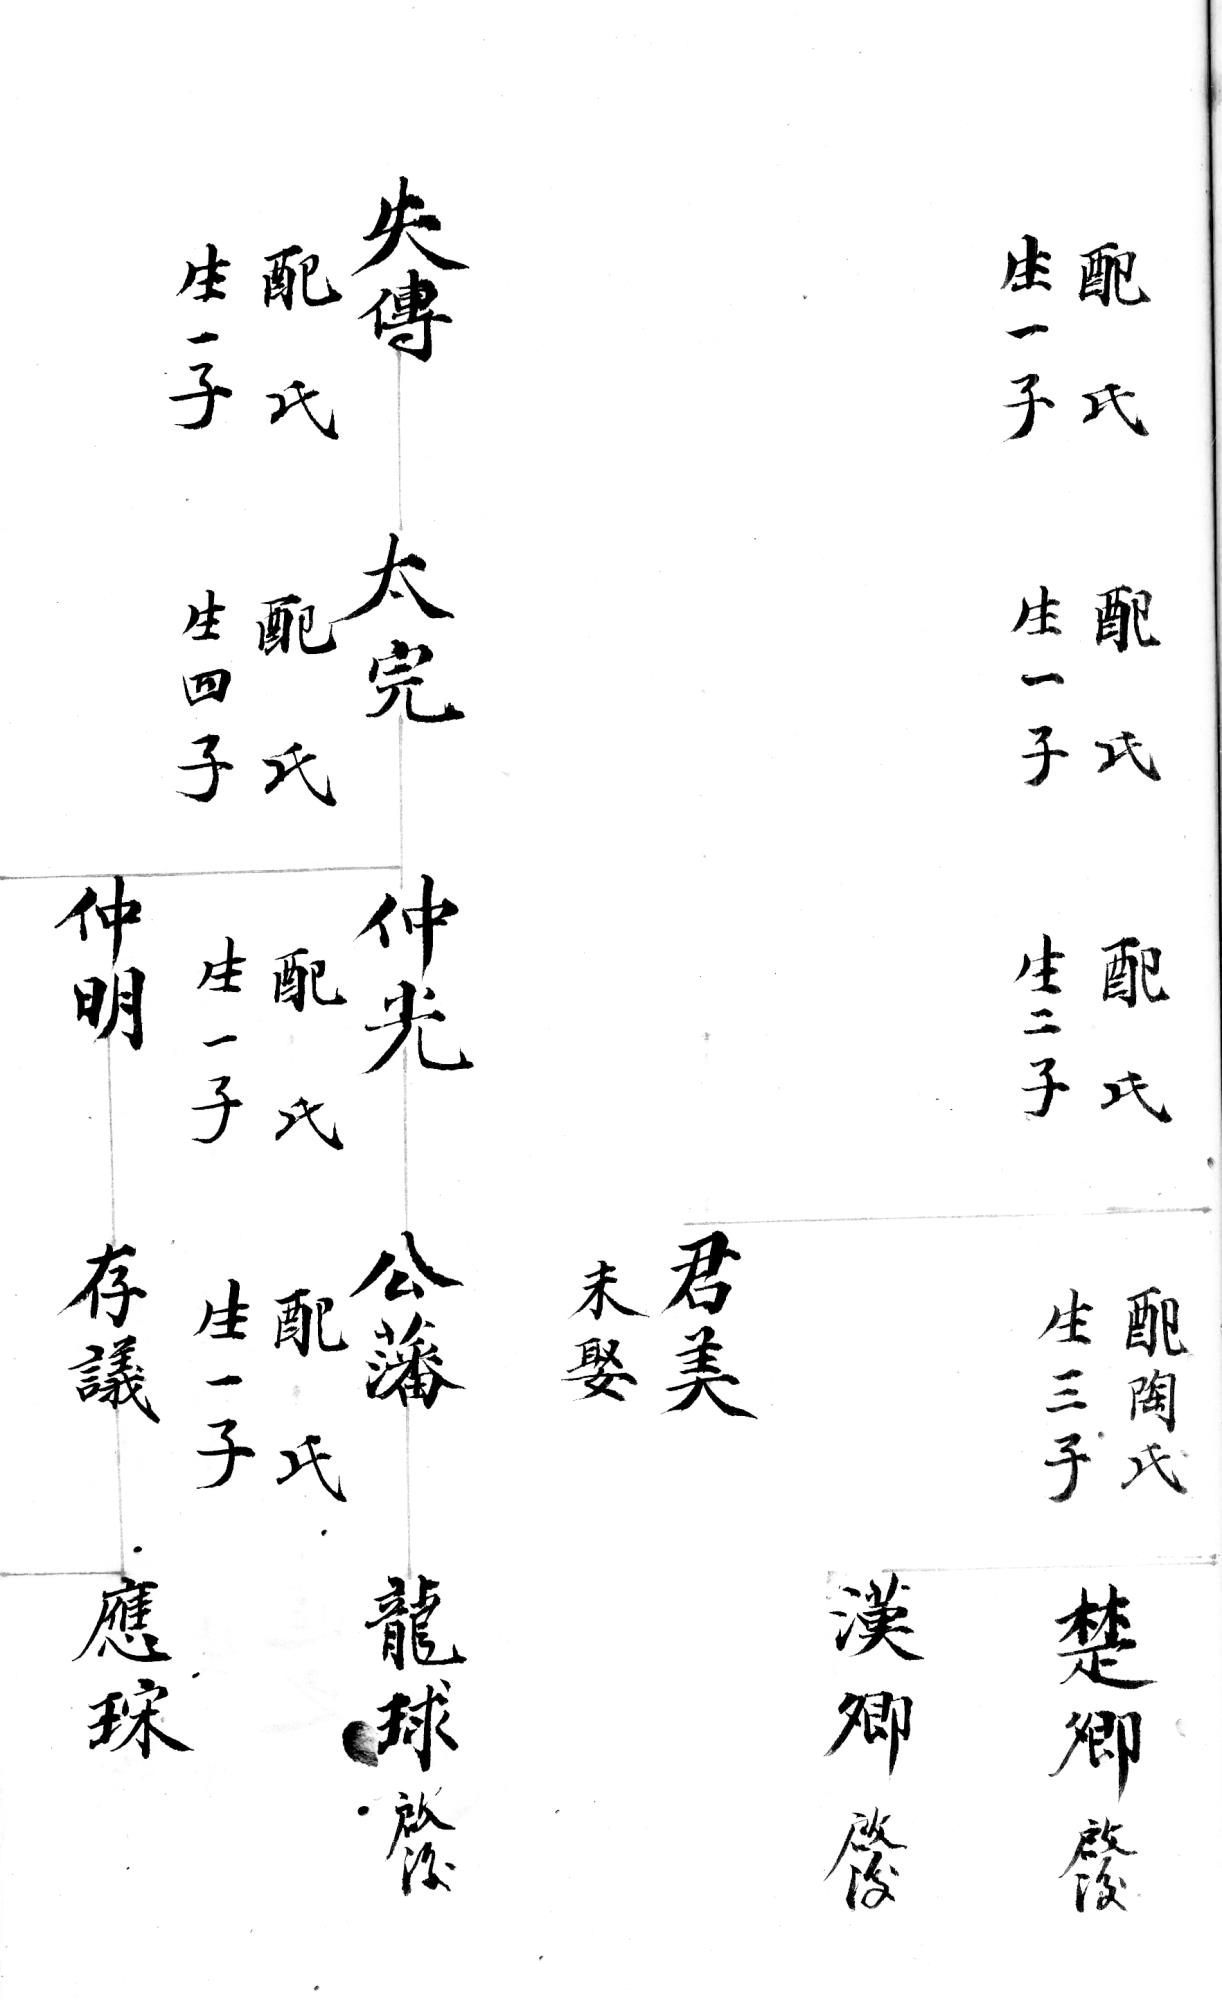 配　氏
生一子
失傳
配　氏
生一子
配　氏
生一子
太完
配　氏
生四子
配　氏
生二子
仲光
配　氏
生一子
仲明
配陶氏
生三子
君美
未娶
公藩
配　氏
生一子
存議
楚卿 啟後
漢卿 啟後
龍球 啟後
應琛